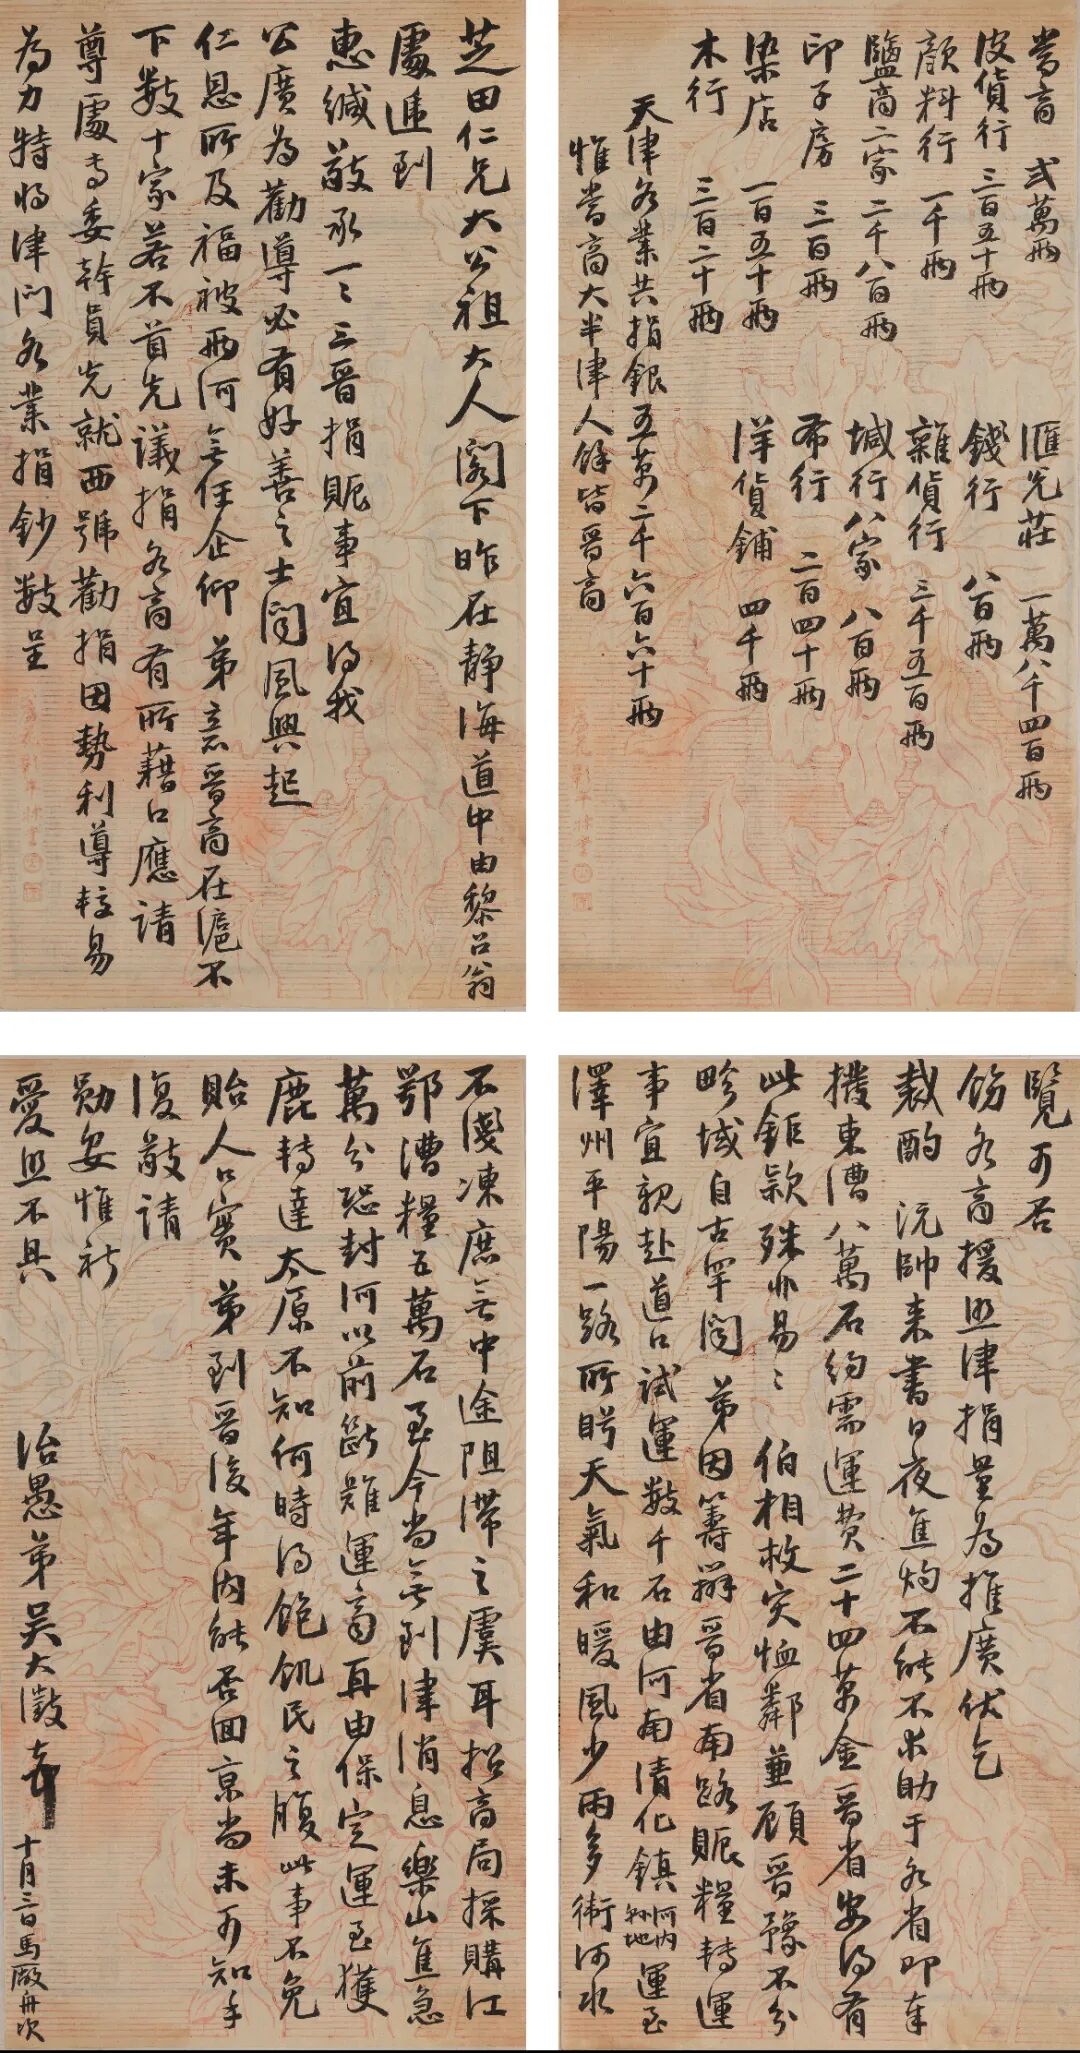 當商 弍萬兩 滙兌莊 一萬八千四百兩
皮貨行 三百五十兩 錢行 八百兩
顏料行 一千兩 雜貨行 三千五百兩
鹽商二家 二千八百兩 堿行八家 八百兩
印子房 三百兩 布行 二百四十兩
染店 一百五十兩 洋貨鋪 四千兩
木行 三百二十兩
天津各業共捐銀五萬二千六百六十兩
惟當商大半津人餘皆晉商
芝田仁兄大公祖大人閣下昨在靜海道中由黎召翁
處遞到
惠緘敬承一一三晉捐賑事宜得我
公廣為勸導必有好善之士聞風興起
仁恩所及福被兩河無任企仰弟意晉商在滬不
下數十家若不首先議捐各商有所藉口應請
尊處專委幹員先就西號勸捐因勢利導較易
為力特將津門各業捐鈔數呈
覽可否
飭各商援照津捐量為推廣伏乞
裁酌 沅帥來書日夜焦灼不能不求助于各省即奉
撥東漕八萬石約需運費二十四萬金晉省安得有
此鉅款殊非易易 伯相救災恤鄰兼顧晉豫不分
畛域自古罕聞 弟因籌辦晉省南路賑糧轉運
事宜親赴道口試運數千石由河南清化鎮河內縣地運至
澤州平陽一路所盼天氣和暖風少雨多衛河水
不淺凍庶無中途阻滯之虞耳招商局採購江
鄂漕糧五萬石至今尚無到津消息樂山焦急
萬分恐封河以前斷難運齊再由保定運至獲
鹿轉達太原不知何時得飽飢民之腹此事不免
貽人口實弟到晉後年內能否回京尚未可知手
復敬請
勛安惟祈
愛照不具
治愚弟吳大澂頓首 十月三日馬廠舟次